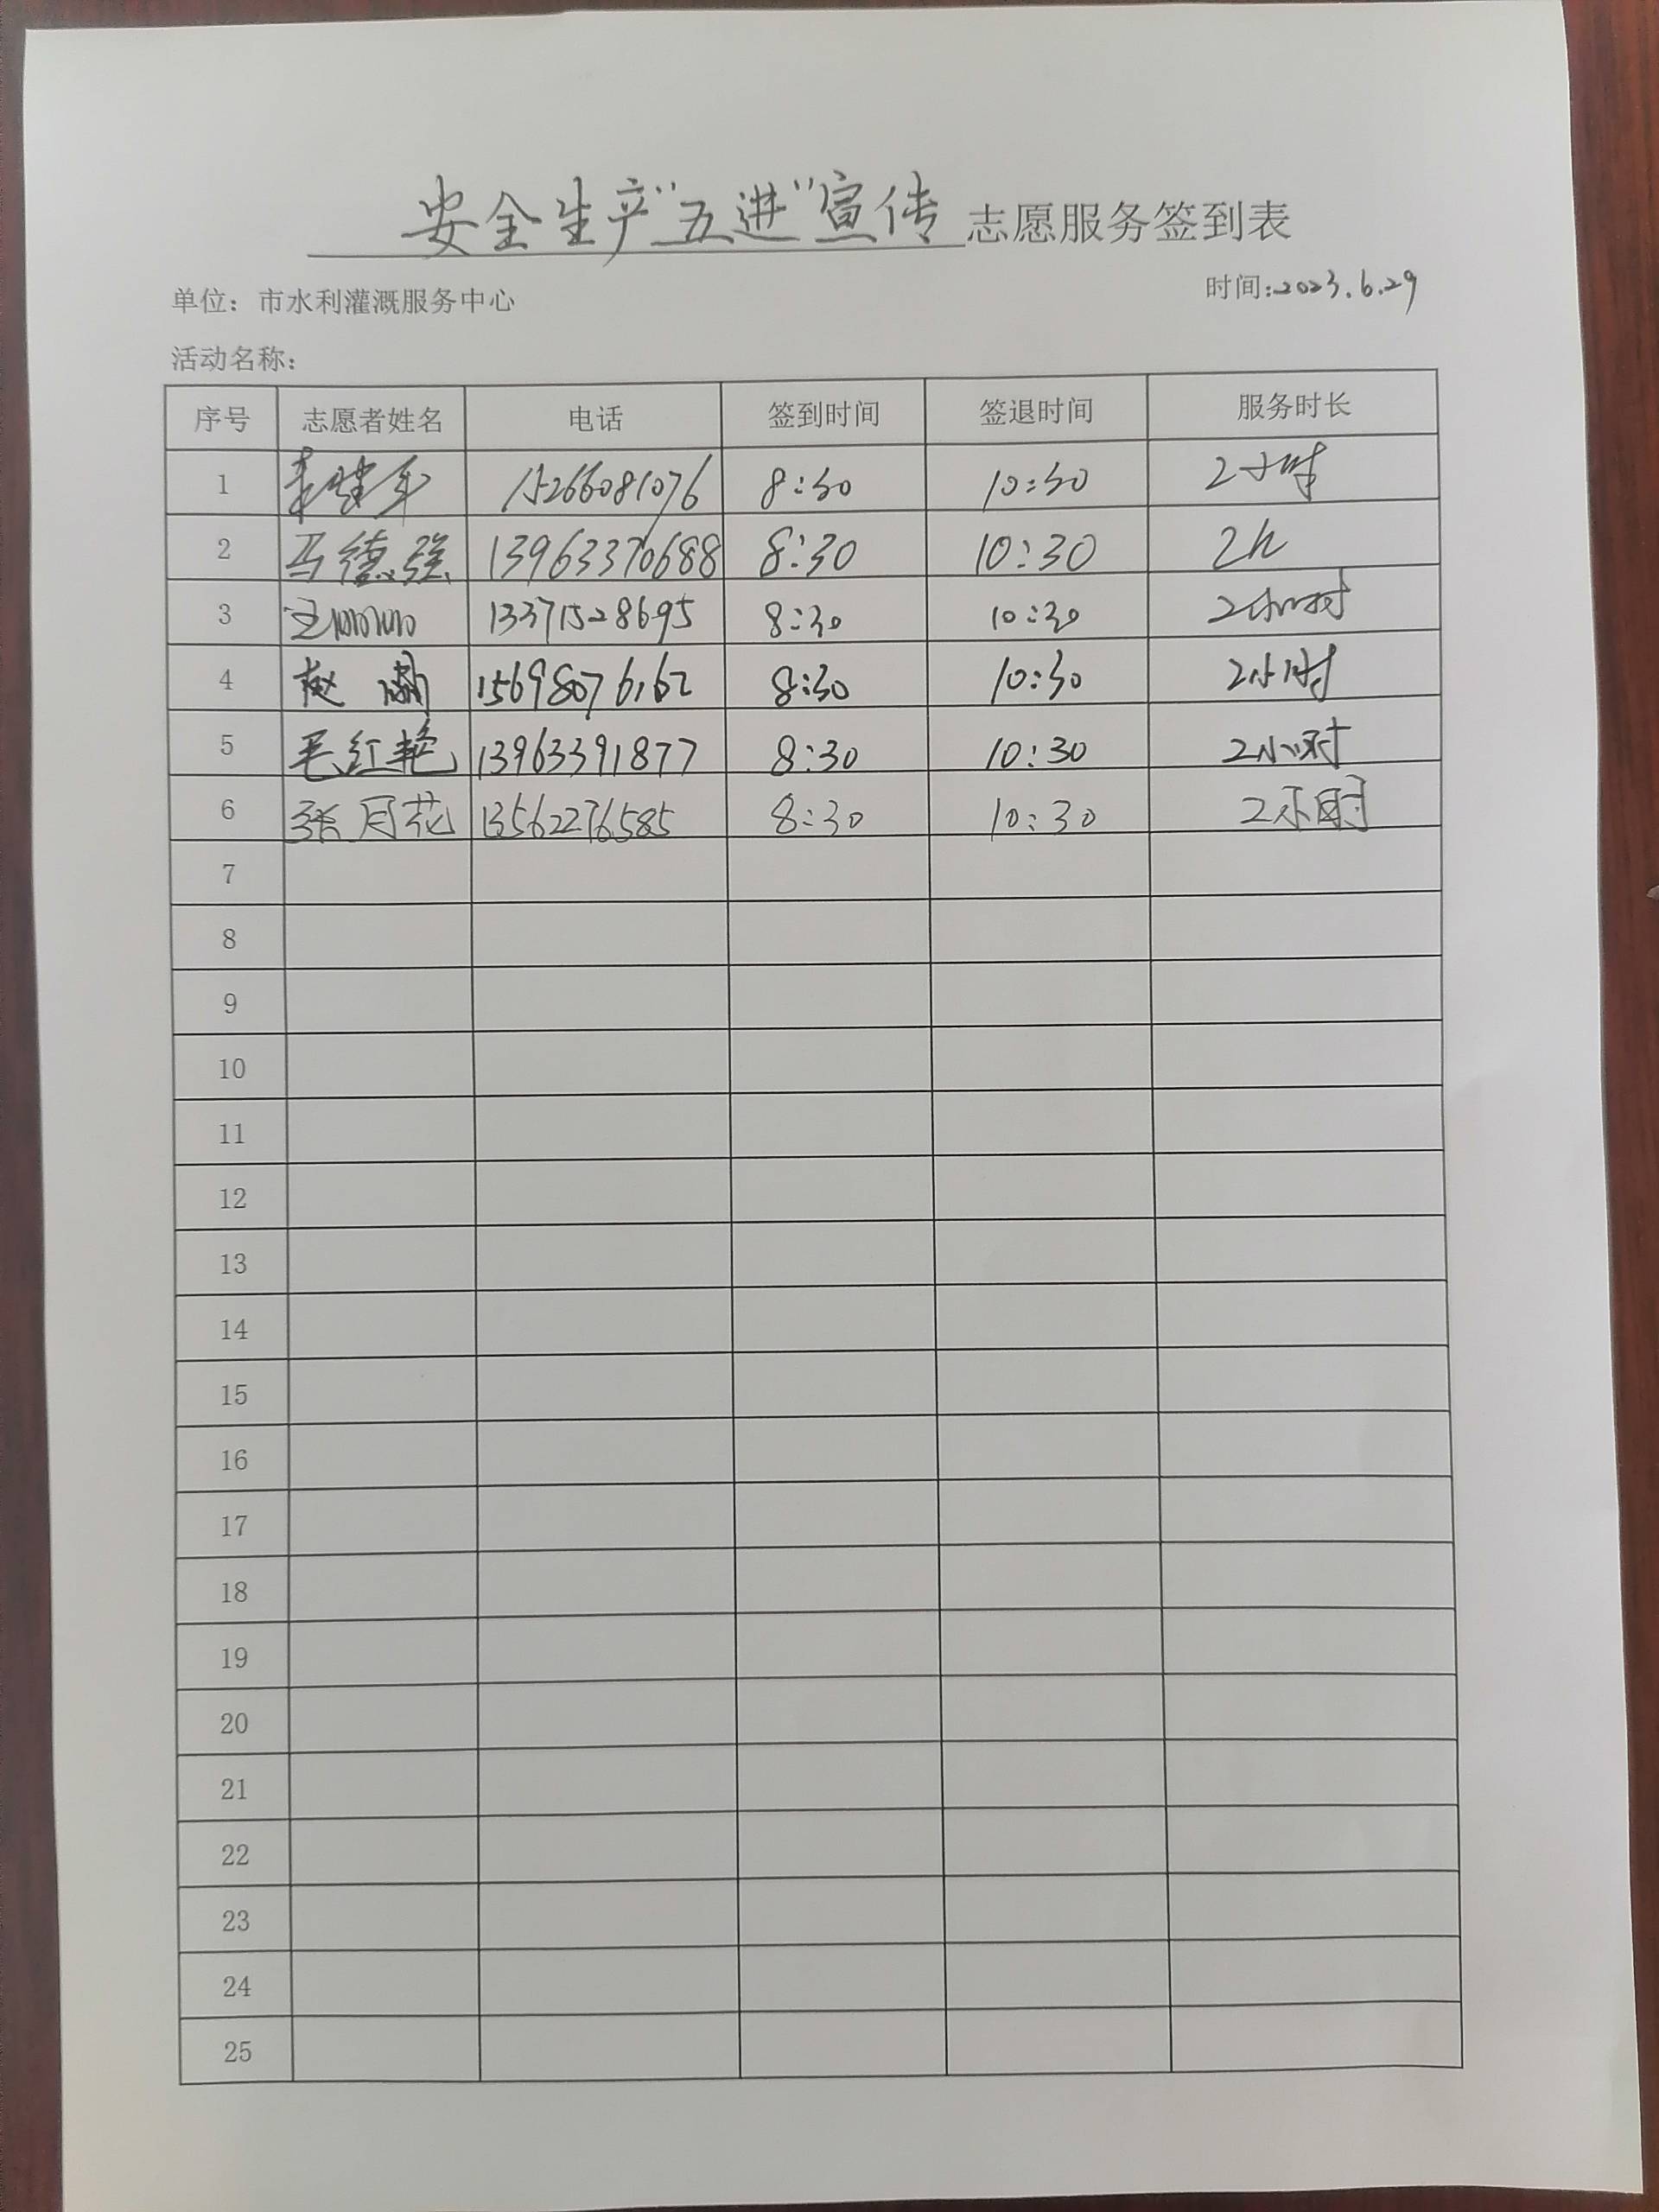 安全生产"五进"宣传 志愿服务签到表
单位：市水利灌溉服务中心 时间:2023.6.29
活动名称：
序号 志愿者姓名 电话 签到时间 签退时间 服务时长
1 15266081076 8:30 10:30 2小时
2 马德强 13963370688 8:30 10:30 2h
3 王 13371528695 8:30 10:30 2小时
4 赵 15698076162 8:30 10:30 2小时
5 毛红艳 13963391877 8:30 10:30 2小时
6 张月花 13562276585 8:30 10:30 2小时
7
8
9
10
11
12
13
14
15
16
17
18
19
20
21
22
23
24
25